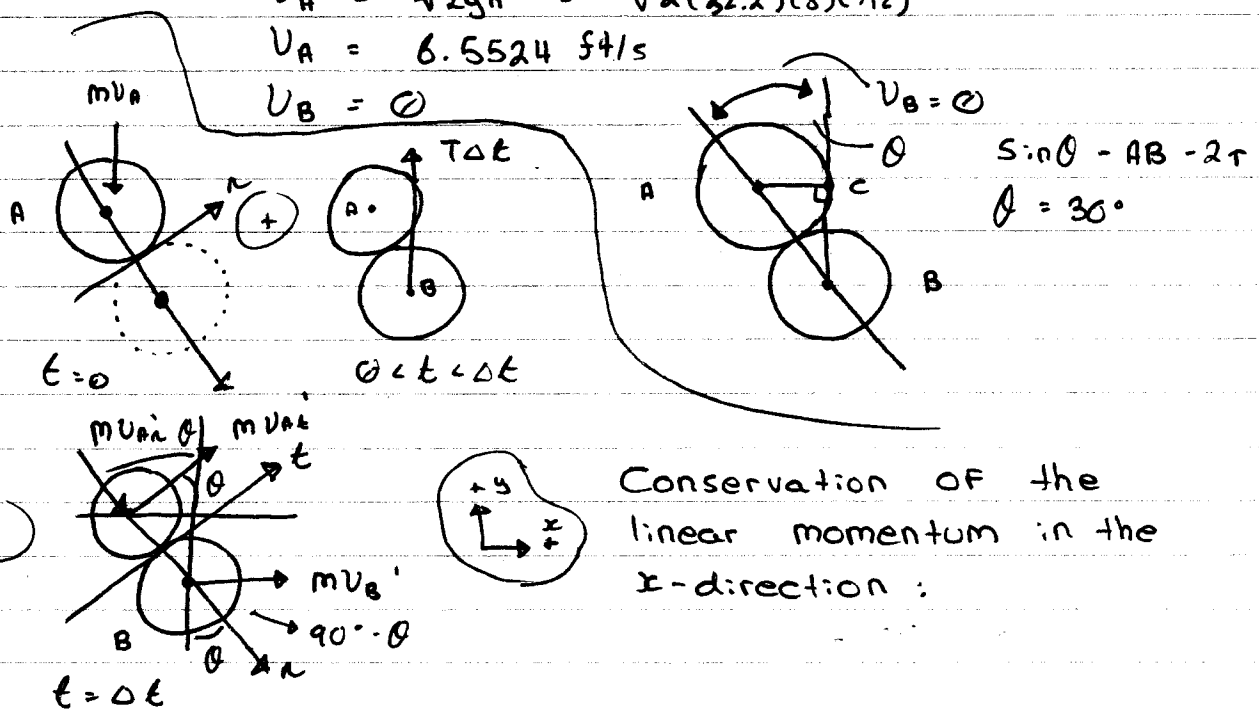 UA = √2gh = √2(32.2)(8)(/12)
UA = 6.5524 ft/s
UB = 0
mUA
A
n
+
t = 0
TΔt
A
B
0 < t < Δt
UB = 0
θ
A
C
B
Sinθ - AB - 2r
θ = 30°
mUAn' θ
mUAt'
θ
t
mUB'
90° - θ
B
θ
n
t = Δt
+ y
x
+
Conservation OF the
linear momentum in the
x-direction :